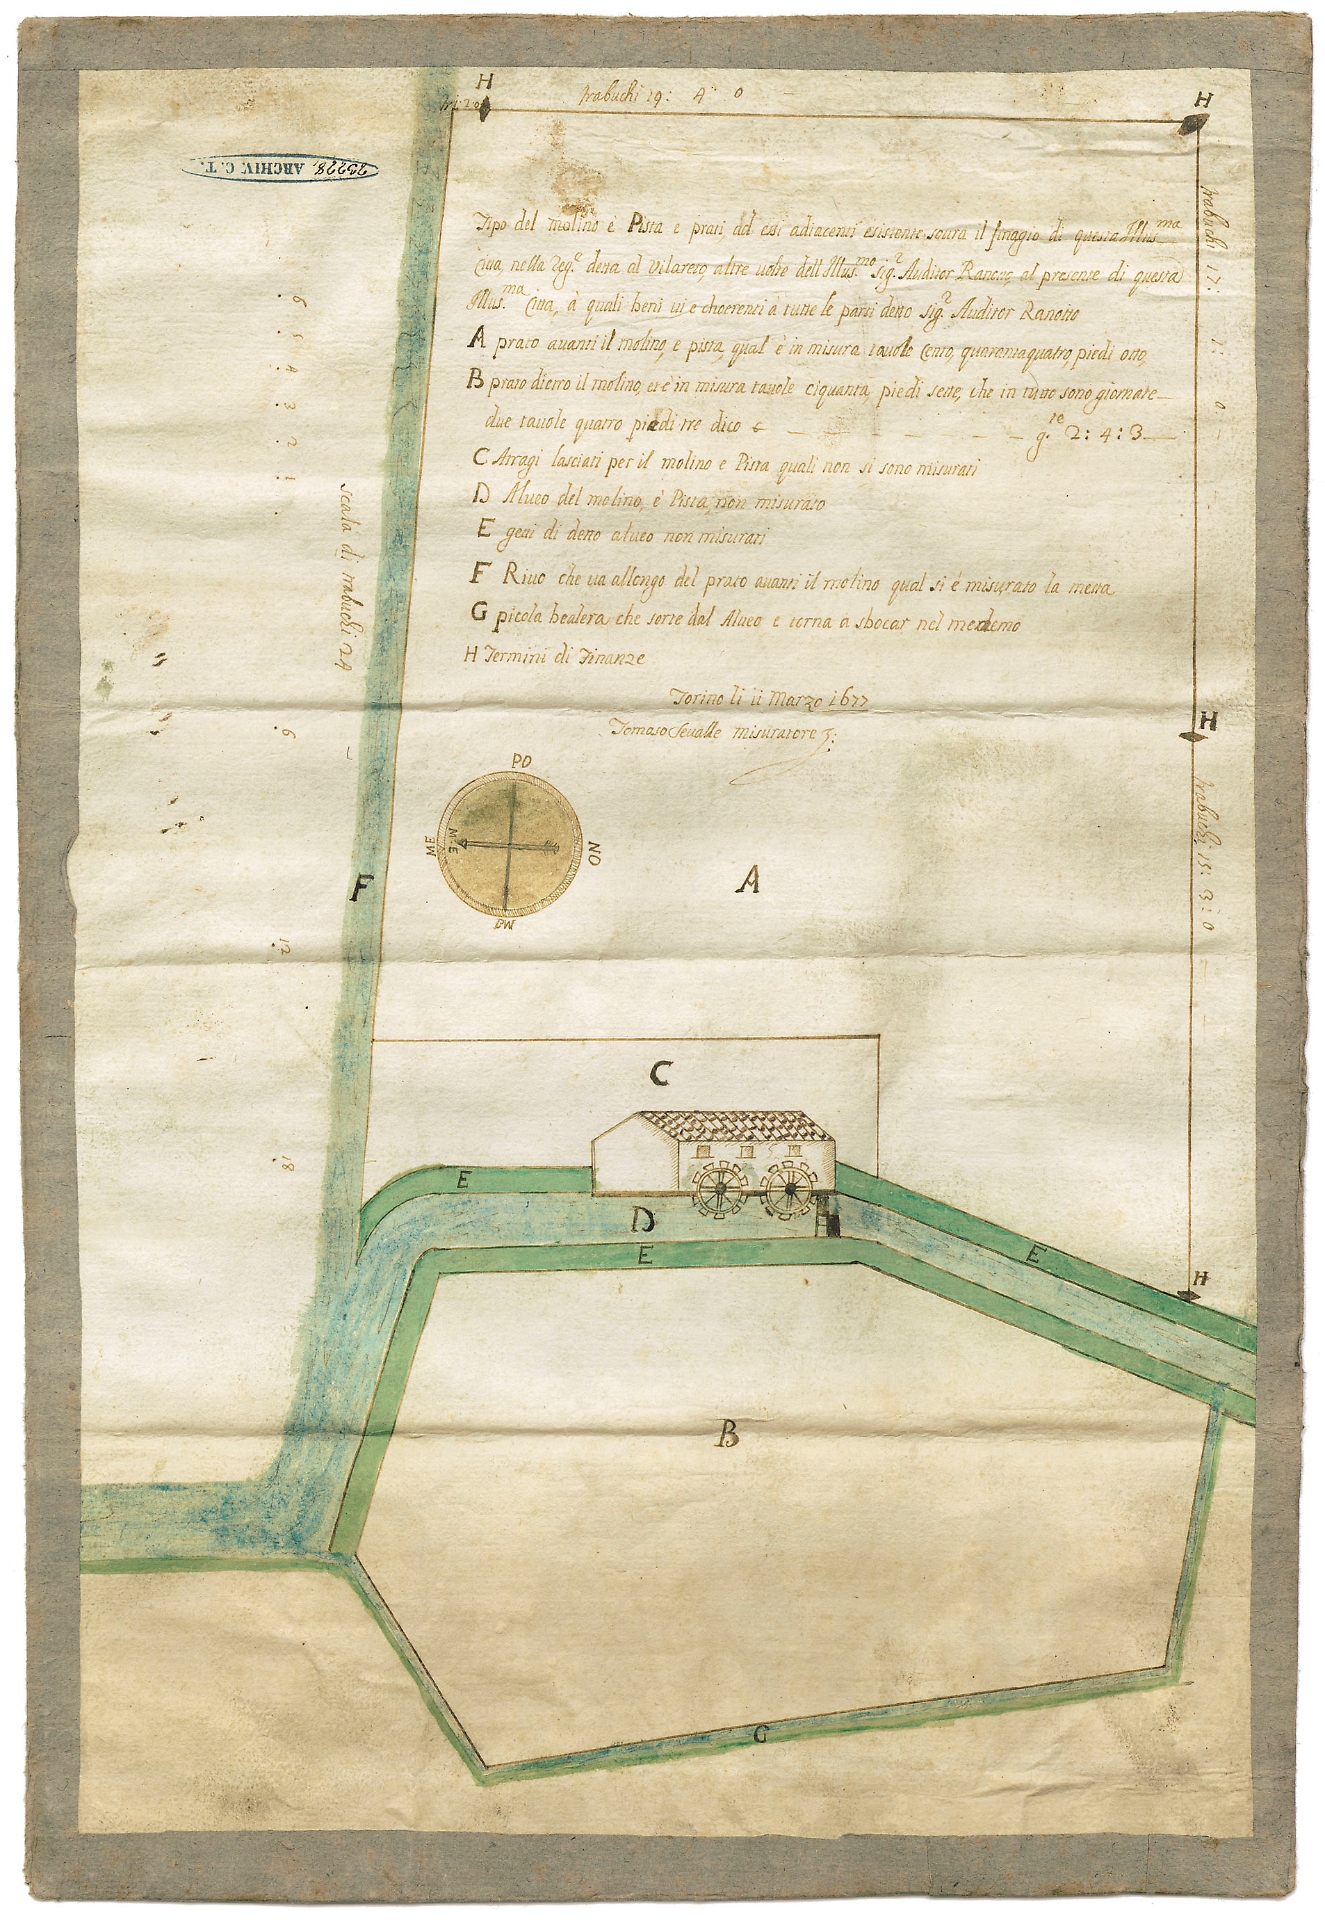 H
H
trabuchi 19: 4 0
73228, ARCHIV. C. T.
Tipo del molino è Pista e prati, ad essi adiacenti esistente soura il finagio di questa Illus.ma
Citta, nella Reg.e detta al Vilareto, altre uolte dell Illus.mo Sig.r Auditor Ranotto, al presente di questa
Illus.ma Citta, à quali beni ui e choerenti à tutte le parti detto Sig.r Auditor Ranotto
A prato auanti il molino, e pista, qual è in misura tauole Cento, quarantaquatro, piedi otto,
B prato dietro il molino, et è in misura tauole ciquanta, piedi sette, che in tutto sono giornate
due tauole quatro piedi tre dico g.te 2: 4: 3
C Atragi lasciati per il molino e Pista quali non si sono misurati
D Alueo del molino, è Pista, non misurato
E getti di detto alueo non misurati
F Riuo che ua allongo del prato auanti il molino qual si è misurato la metta
G picola bealera che sorte dal Alueo e torna a sbocar nel medemo
H Termini di Finanze
Torino li 11 Marzo 1677
Tomaso Seualle misuratore
trabuchi 17: 1: 0
H
trabuchi 15: 3: 0
H
6 5 4 3 2 1
6
12
18
scala di trabuchi 24
PO
ME
M·E
NO
F
A
C
E
D
E
E
B
G